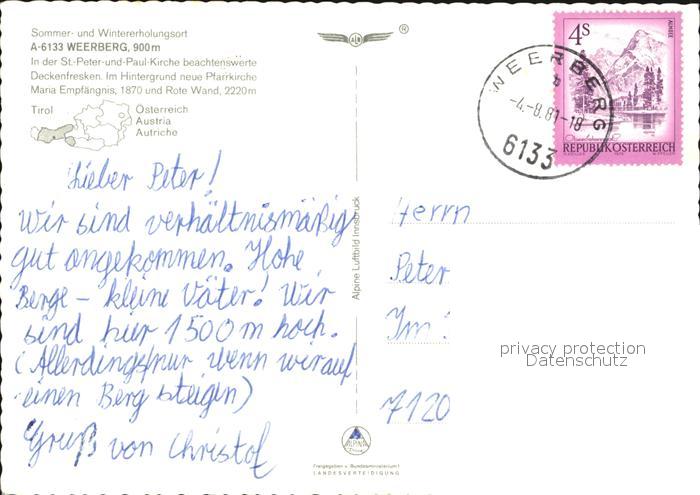 Sommer- und Wintererholungsort
A-6133 WEERBERG, 900m
In der St.-Peter-und-Paul-Kirche beachtenswerte
Deckenfresken. Im Hintergrund neue Pfarrkirche
Maria Empfängnis, 1870 und Rote Wand, 2220m
Tirol
Österreich
Austria
Autriche
Lieber Peter!
Wir sind verhältnismäßig
gut angekommen. Hohe
Berge – kleine Väter! Wir
sind hier 1500 m hoch.
(Allerdings nur wenn wir auf
einen Berg steigen)
Gruß von Christof
Alpine Luftbild Innsbruck
ALPINE
Freigegeben v. Bundesministerium f.
LANDESVERTEIDIGUNG
®
4S
ALMSEE
REPUBLIK ÖSTERREICH
WEERBERG
b
-4.-8.81-18
6133
Herrn
Peter
Im
7120
privacy protection
Datenschutz